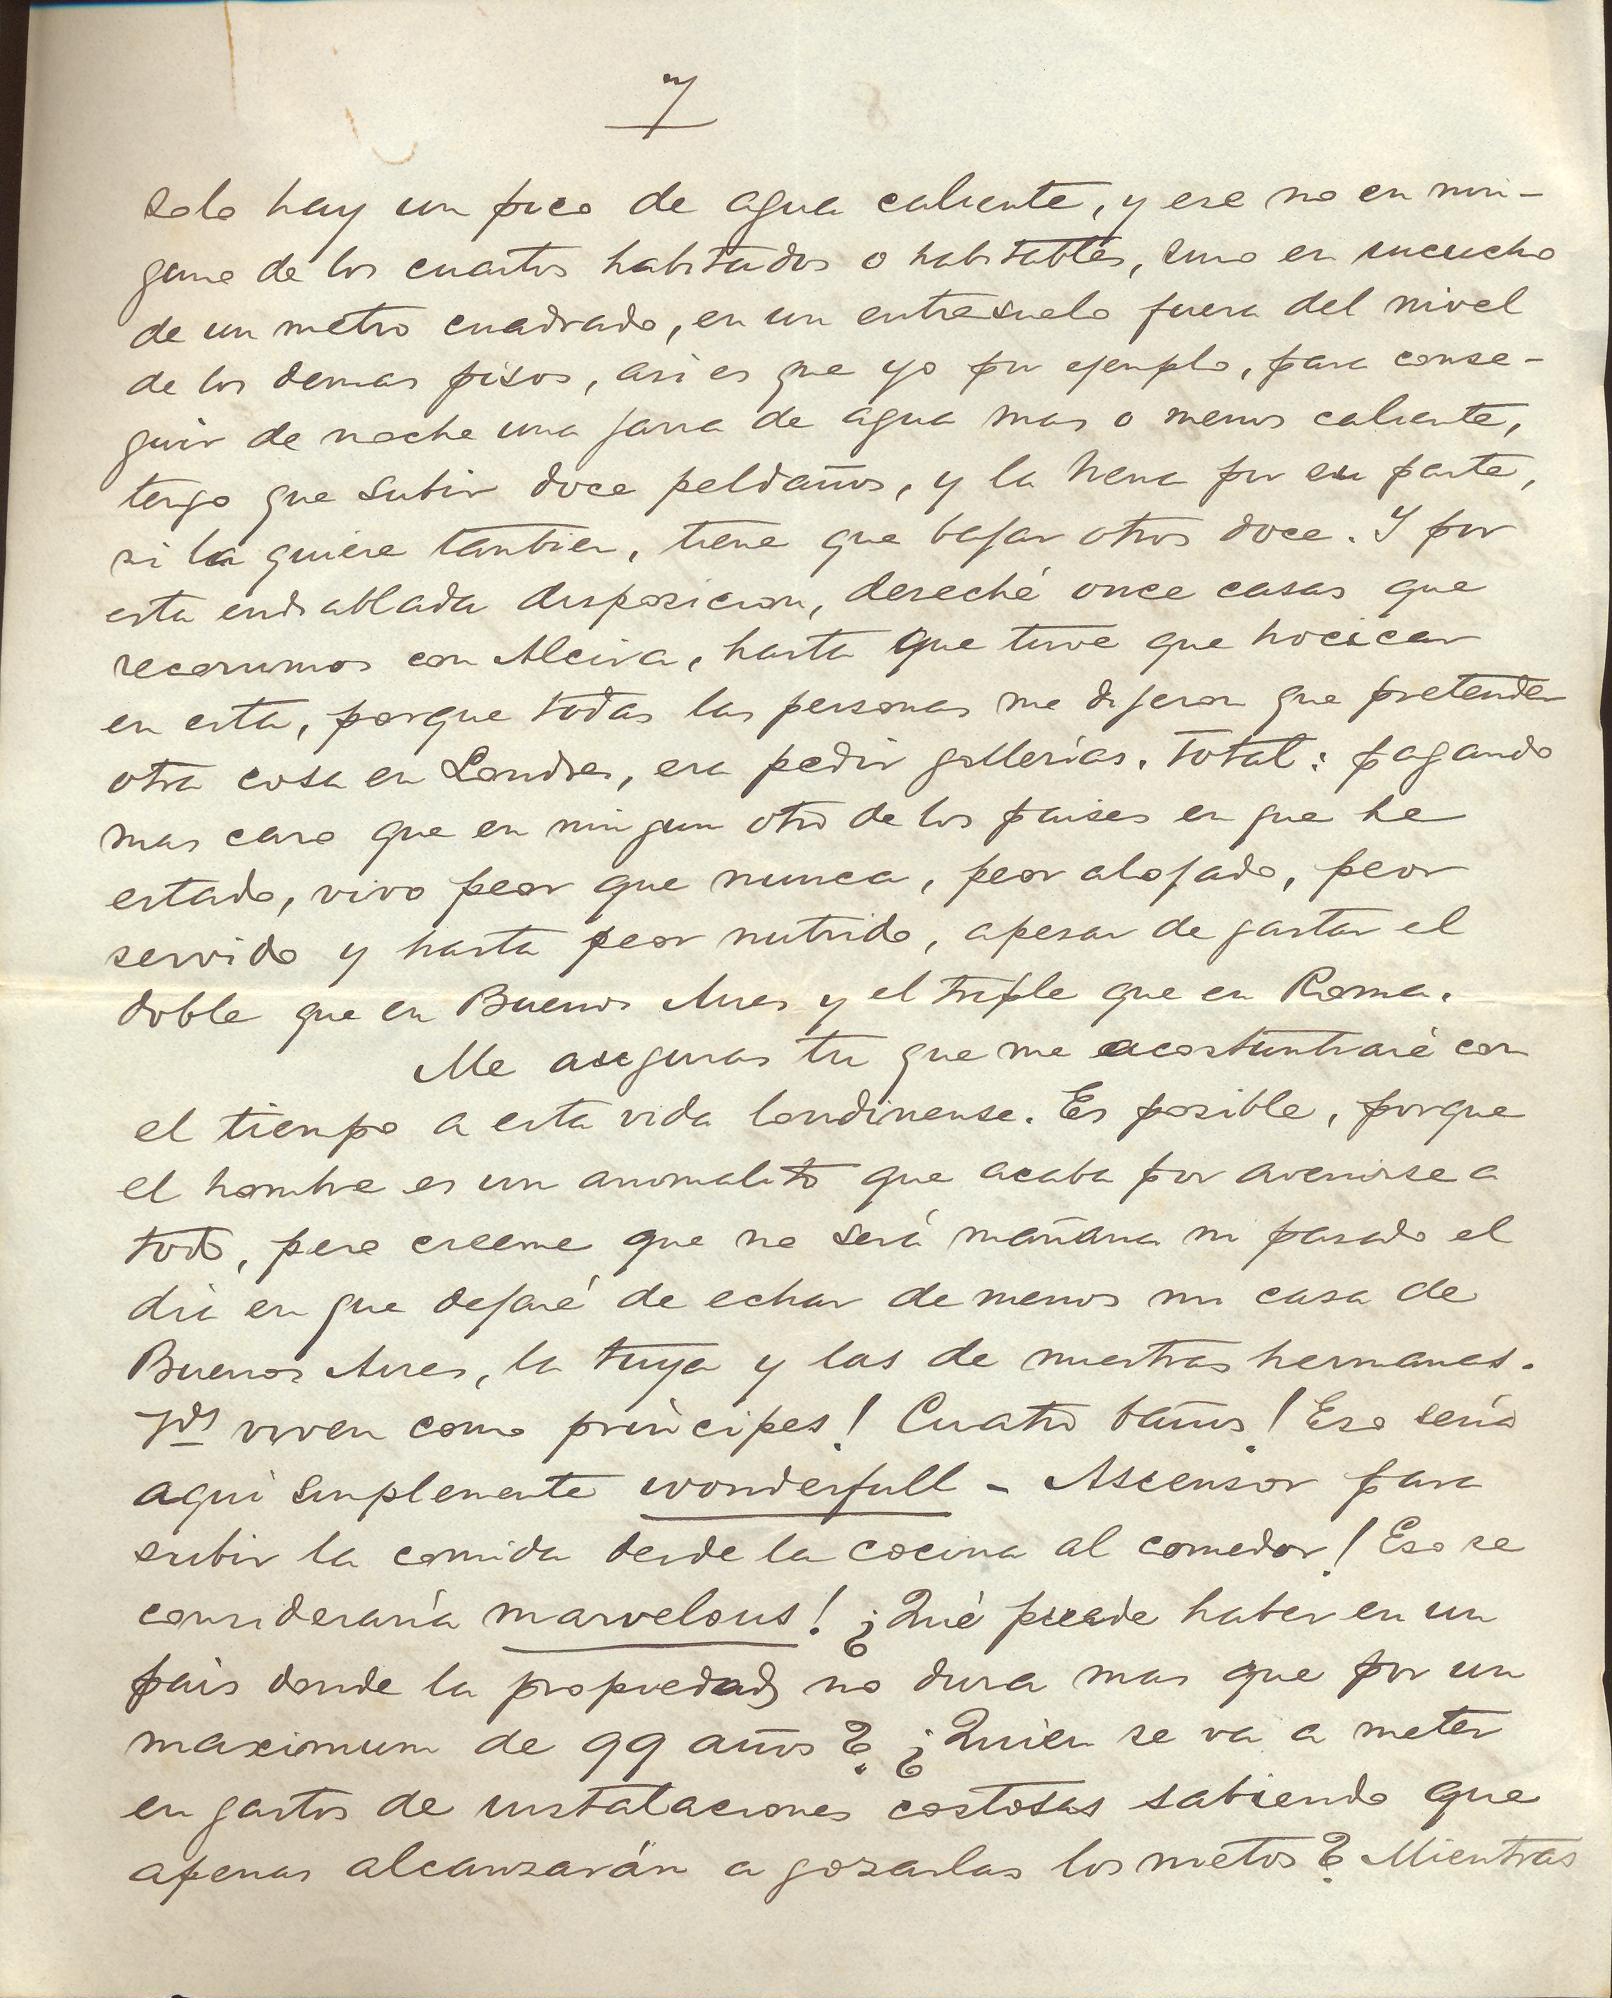 7
solo hay un pico de agua caliente, y ese no en nin-
guno de los cuartos habitados o habitables, sino en sucucho
de un metro cuadrado, en un entresuelo fuera del nivel
de los demas pisos, asi es que yo por ejemplo, para conse-
guir de noche una jarra de agua mas o menos caliente,
tengo que subir doce peldaños, y la Nena por su parte,
si la quiere tambien, tiene que bajar otros doce. Y por
esta endiablada disposicion, deseché once casas que
recorrimos con Alcira, hasta que tuve que hocicar
en esta, porque todas las personas me dijeron que pretender
otra cosa en Londres, era pedir gollerías. Total: pagando
mas caro que en ningun otro de los paises en que he
estado, vivo peor que nunca, peor alojado, peor
servido y hasta peor nutrido, apesar de gastar el
doble que en Buenos Aires y el triple que en Roma.
Me aseguras tu que me acostumbraré con
el tiempo a esta vida londinense. Es posible, porque
el hombre es un animalito que acaba por avenirse a
todo, pero creeme que no será mañana ni pasado el
dia en que dejaré de echar de menos mi casa de
Buenos Aires, la tuya y las de nuestras hermanas.
Vds viven como príncipes! Cuatro baños! Eso sería
aqui simplemente wonderfull - Ascensor para
subir la comida desde la cocina al comedor! Eso se
consideraría marvelous! ¿Qué puede haber en un
pais donde la propiedad no dura mas que por un
maximum de 99 años? ¿Quien se va a meter
en gastos de instalaciones costosas sabiendo que
apenas alcanzarán a gozarlas los nietos? Mientras